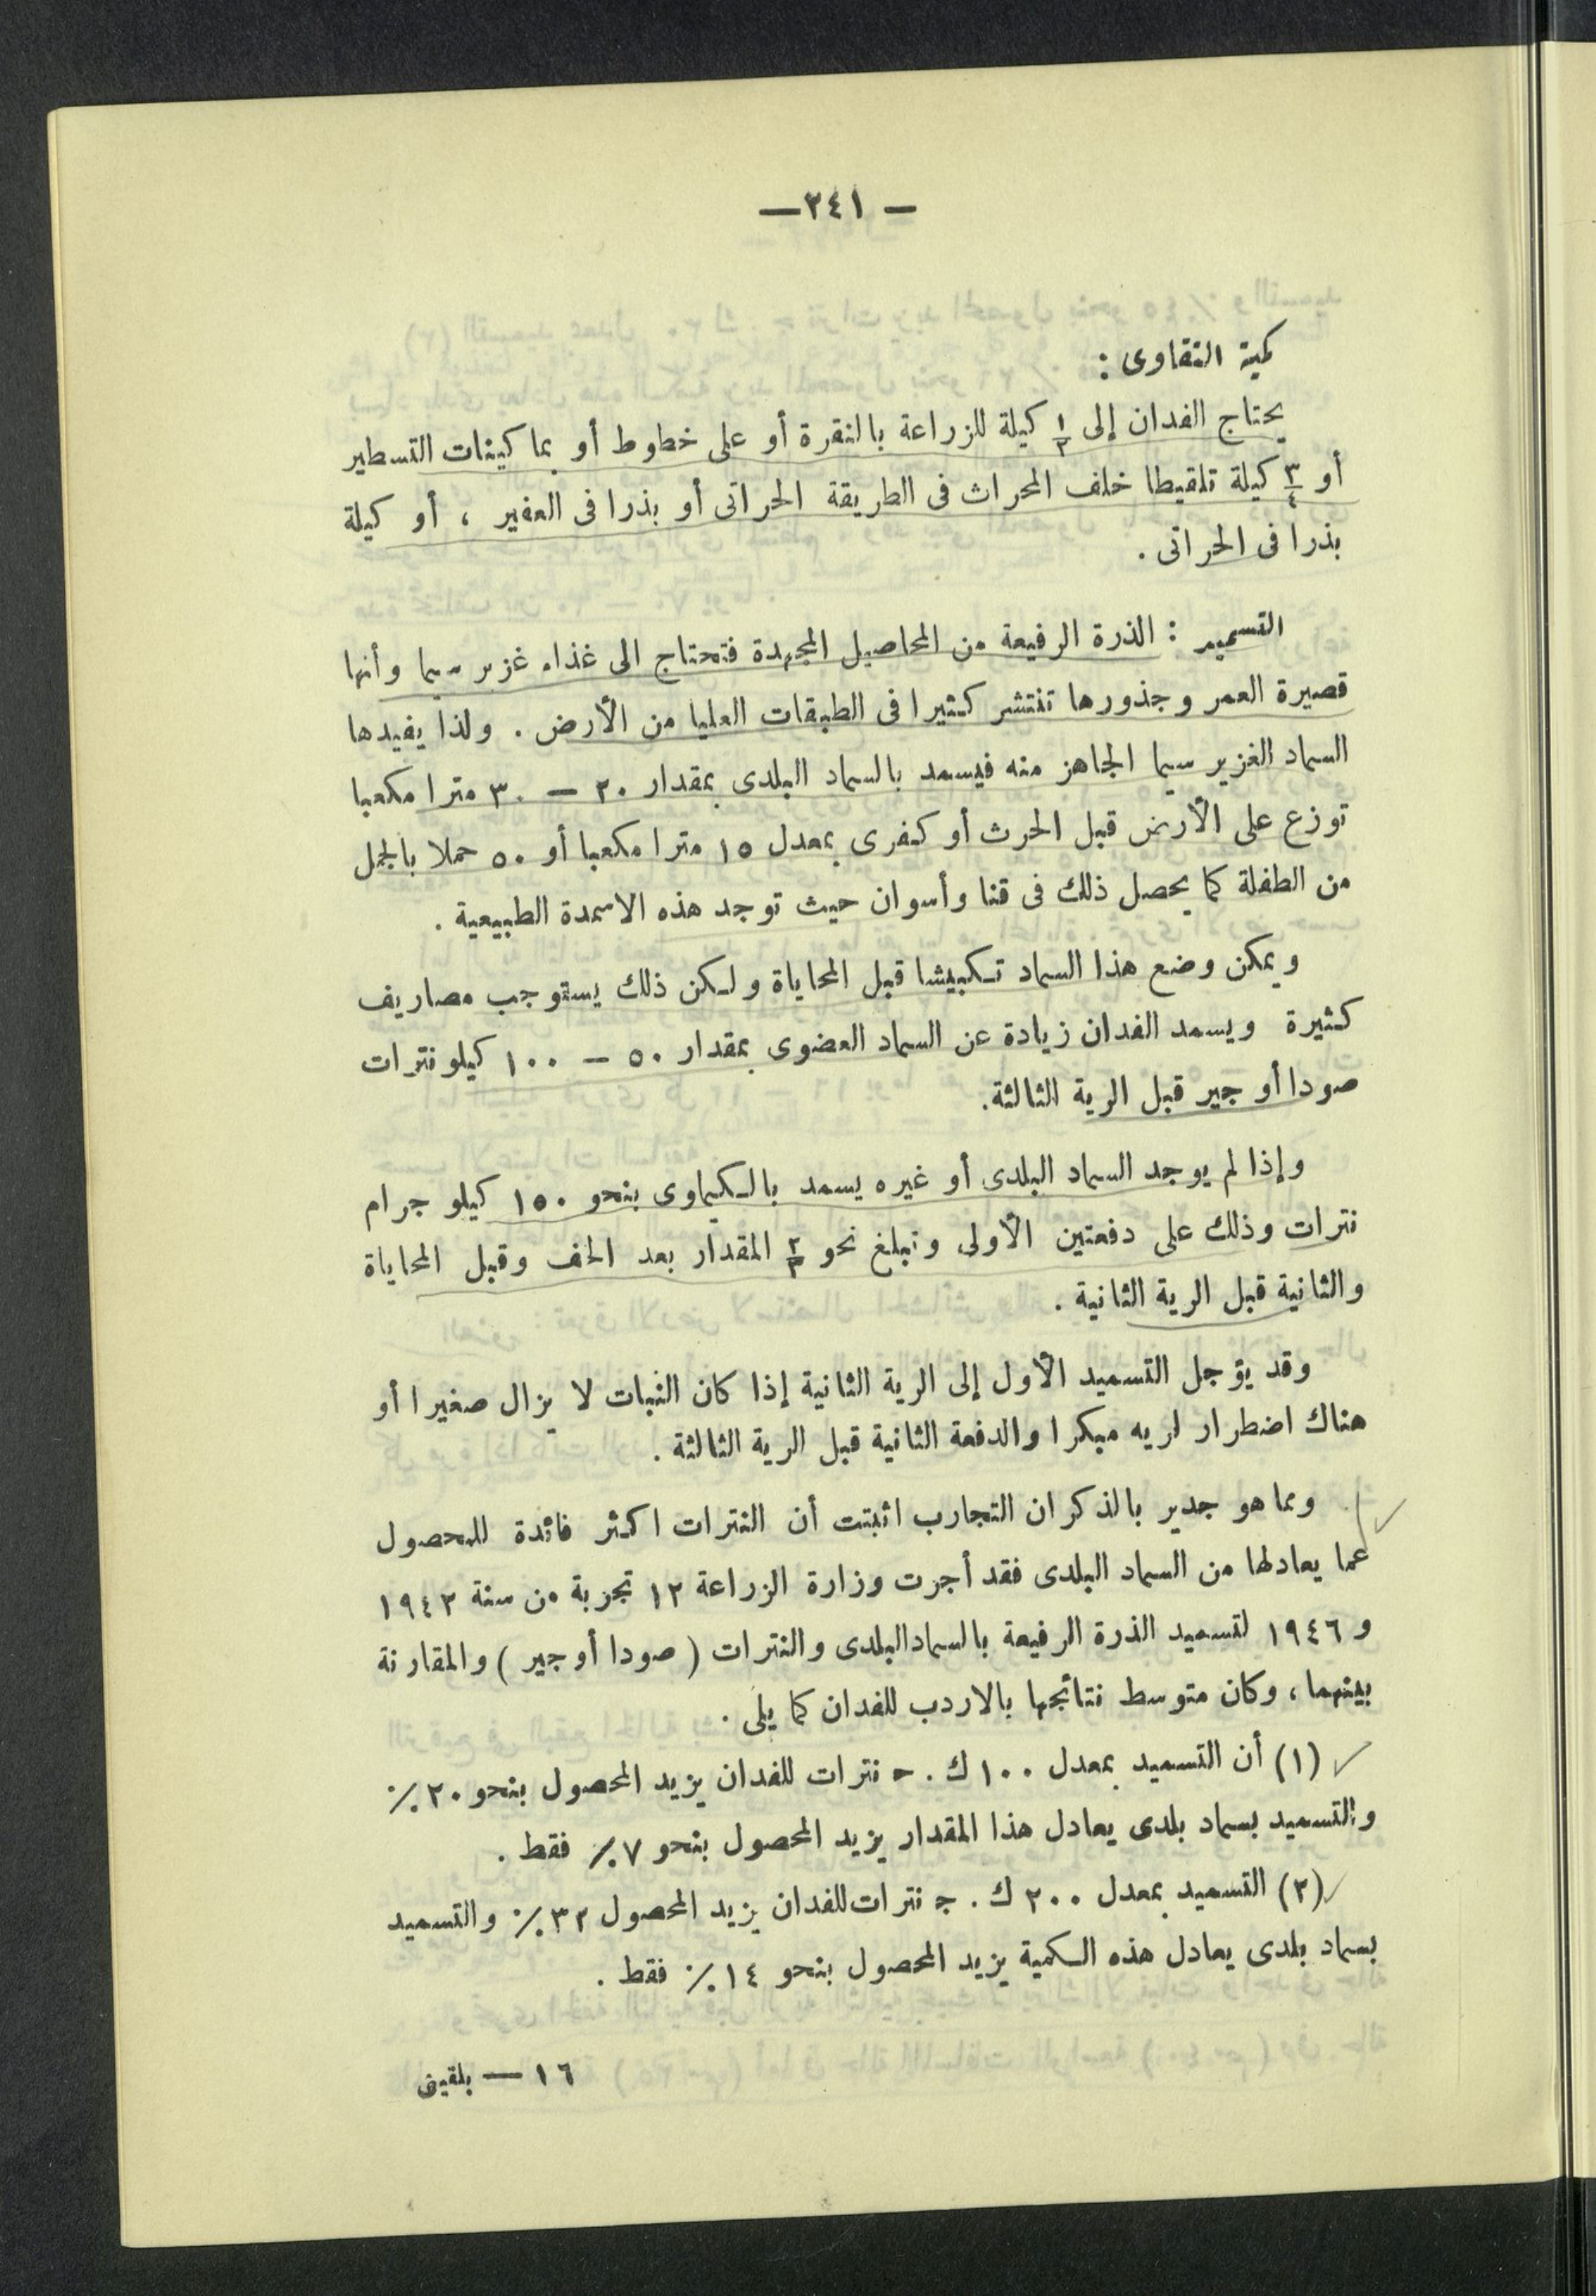 — ٢٤١ —
كمية التقاوى :
يحتاج الفدان إلى ١/٢ كيلة للزراعة بالنقرة أو على خطوط أو بماكينات التسطير
أو ٣/٤ كيلة تلقيطا خلف المحراث فى الطريقة الحراتى أو بذرا فى العفير ، أو كيلة
بذرا فى الحراتى .
التسميد : الذرة الرفيعة من المحاصيل المجهدة فتحتاج الى غذاء غزير سيما وأنها
قصيرة العمر وجذورها تنتشر كثيرا فى الطبقات العليا من الأرض . ولذا يفيدها
السماد الغزير سيما الجاهز منه فيسمد بالسماد البلدى بمقدار ٢٠ — ٣٠ مترا مكعبا
توزع على الأرض قبل الحرث أو كفرى بمعدل ١٥ مترا مكعبا أو ٥٠ حملا بالجمل
من الطفلة كما يحصل ذلك فى قنا وأسوان حيث توجد هذه الاسمدة الطبيعية .
ويمكن وضع هذا السماد تكبيشا قبل المحاياة ولكن ذلك يستوجب مصاريف
كثيرة ويسمد الفدان زيادة عن السماد العضوى بمقدار ٥٠ — ١٠٠ كيلو نترات
صودا أو جير قبل الرية الثالثة.
وإذا لم يوجد السماد البلدى أو غيره يسمد بالكيماوى بنحو ١٥٠ كيلو جرام
نترات وذلك على دفعتين الأولى وتبلغ نحو ٢/٣ المقدار بعد الخف وقبل المحاياة
والثانية قبل الرية الثانية .
وقد يؤجل التسميد الأول إلى الرية الثانية إذا كان النبات لا يزال صغيرا أو
هناك اضطرار لريه مبكرا والدفعة الثانية قبل الرية الثالثة .
ومما هو جدير بالذكر ان التجارب اثبتت أن النترات اكثر فائدة للمحصول
عما يعادلها من السماد البلدى فقد أجرت وزارة الزراعة ١٢ تجربة من سنة ١٩٤٣
و ١٩٤٦ لتسميد الذرة الرفيعة بالسماد البلدى والنترات ( صودا أو جير ) والمقارنة
بينهما ، وكان متوسط نتائجها بالاردب للفدان كما يلى .
(١) أن التسميد بمعدل ١٠٠ ك . ج نترات للفدان يزيد المحصول بنحو ٢٠ ٪
والتسميد بسماد بلدى يعادل هذا المقدار يزيد المحصول بنحو ٧ ٪ فقط .
(٢) التسميد بمعدل ٢٠٠ ك . ج نترات للفدان يزيد المحصول ٣٢ ٪ والتسميد
بسماد بلدى يعادل هذه الكمية يزيد المحصول بنحو ١٤ ٪ فقط .
١٦ — بلقينى